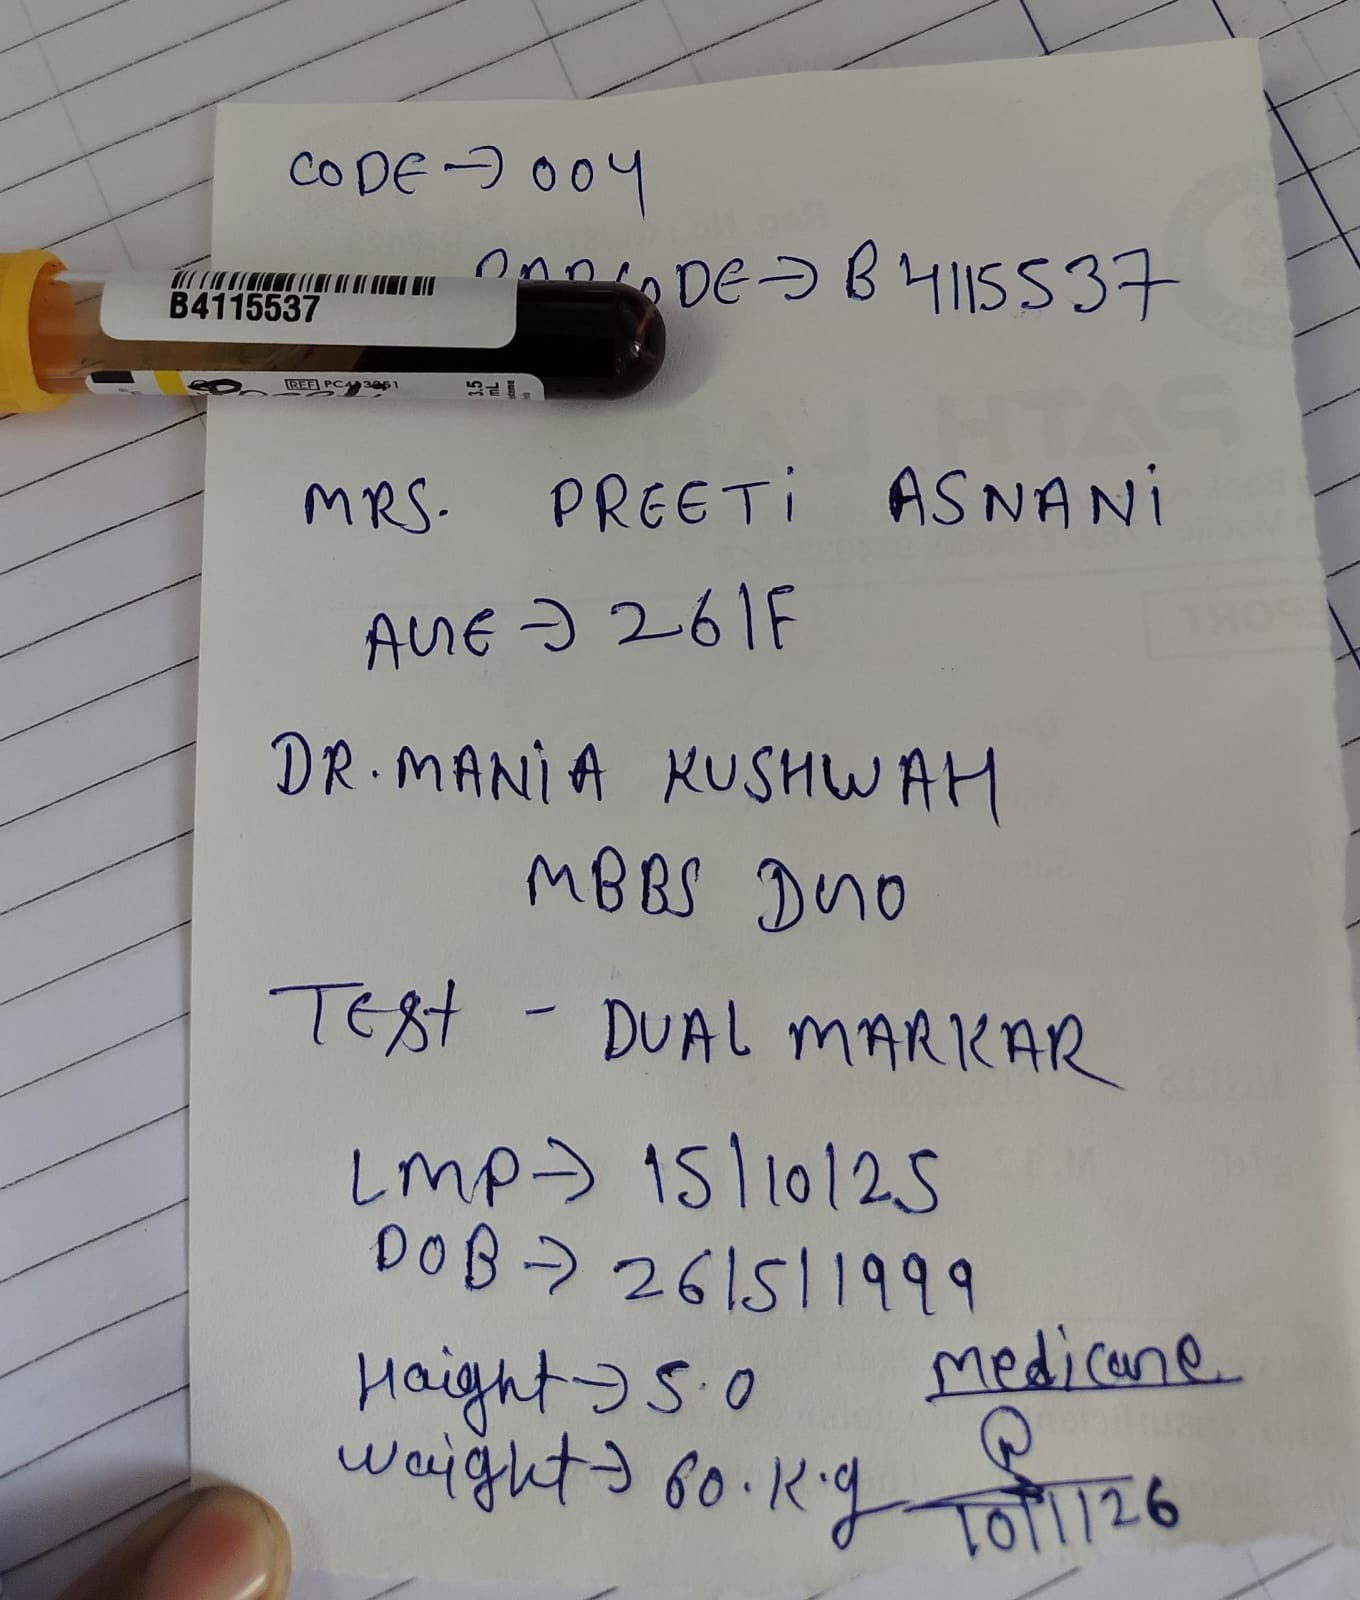 CODE → 004
BARCODE → B4115537
B4115537
REF PC433951
3.5
mL
MRS. PREETi ASNANi
AGE → 26/F
DR. MANiA KUSHWAH
MBBS DGO
TEST - DUAL MARKAR
LMP → 15/10/25
DOB → 26/5/1999
Haight → 5.0
Waight → 60.K.g
medicane
10/1/26